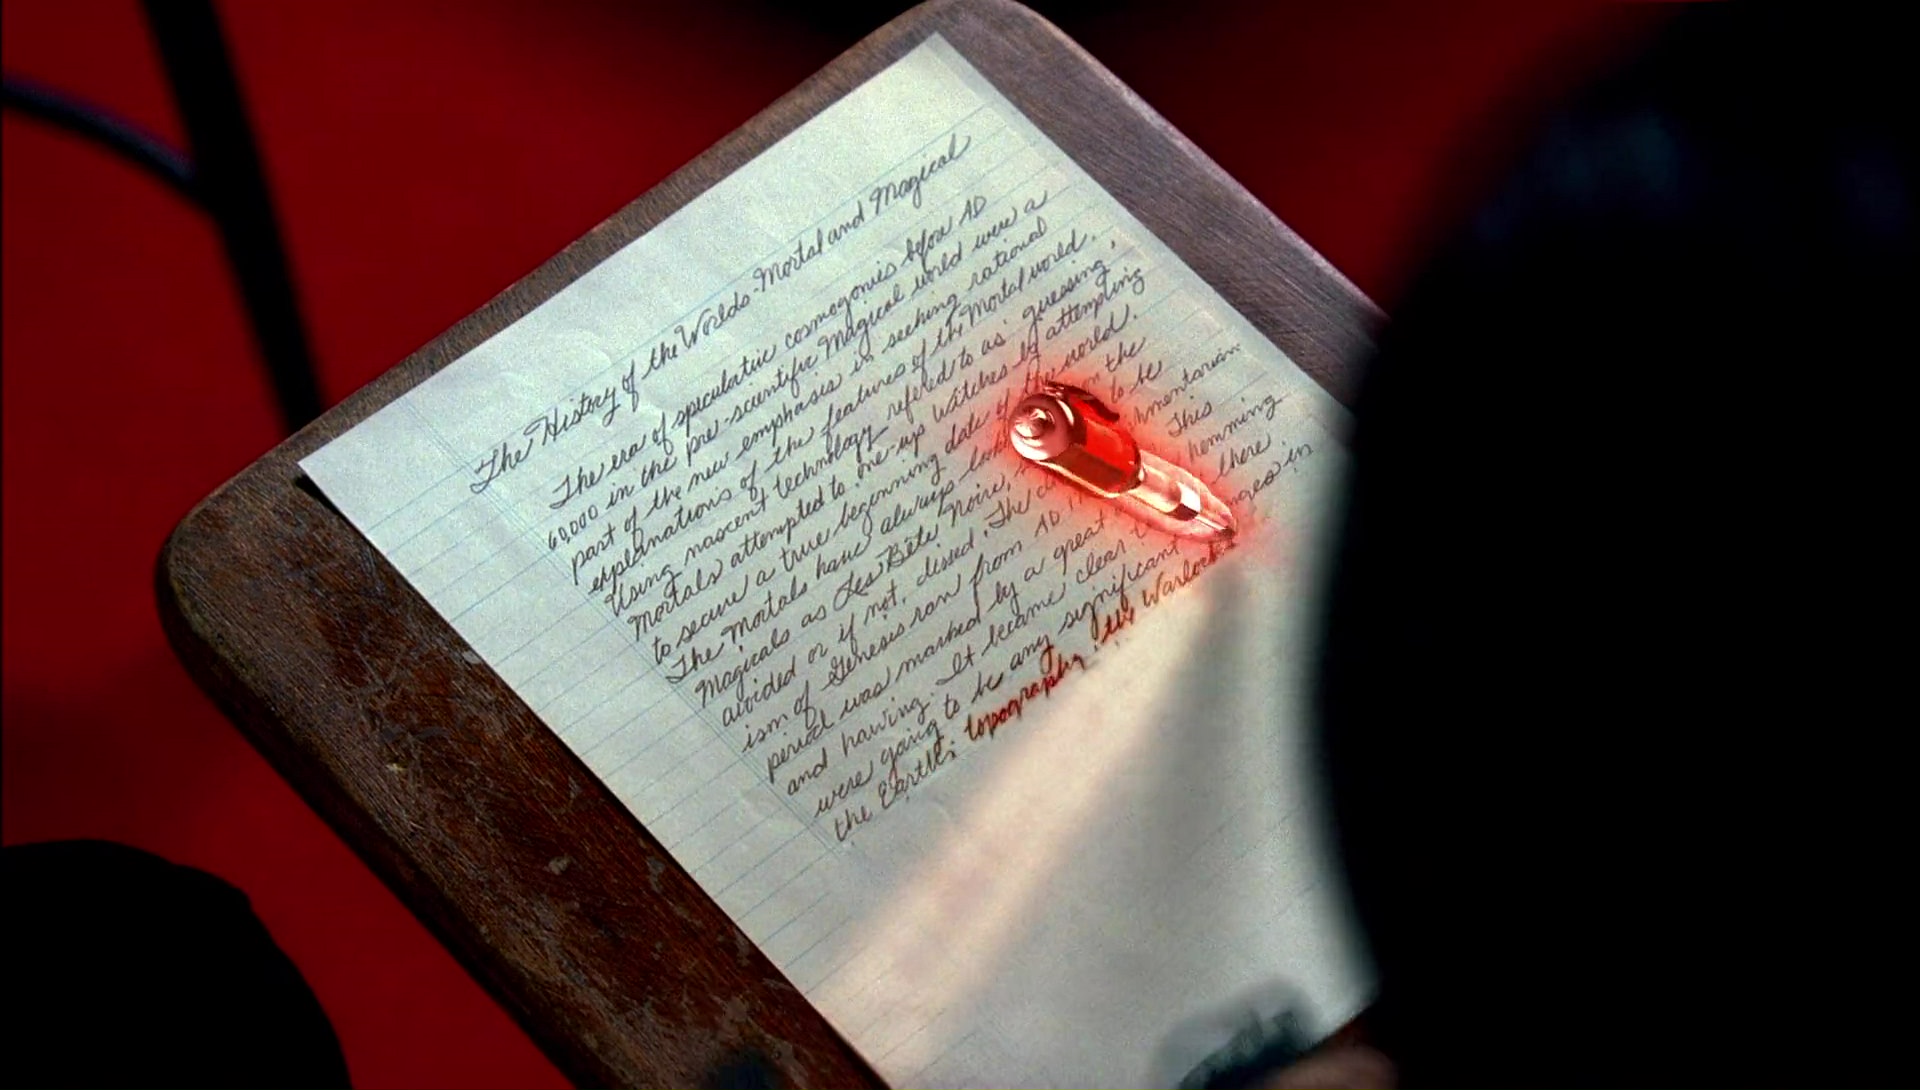 The History of the Worlds-Mortal and Magical
The era of speculative cosmogonies before AD
60,000 in the pre-scientific Magical world were a
part of the new emphasis in seeking rational
explanations of the features of the Mortal world.
Using nascent technology refered to as guessing,
Mortals attempted to one-up Witches by attempting
to secure a true beginning date of the world.
The Mortals have always the
Magicals as Les Bête Noire, to be
avoided or if not, dissed. The
ism of Genesis ran from AD This
period was marked by a great hemming
and hawing. It became clear there
were going to be any significant in
the Earth's topography. the Warlock